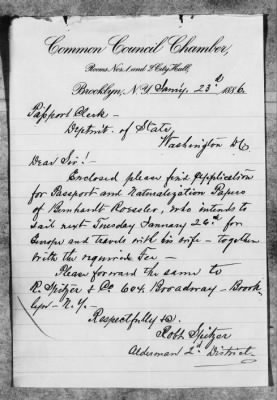 Common Council Chamber,
Rooms Nos. 1 and 2 City Hall,
Brooklyn, N.Y. Jany. 23d 1886
Passport Clerk —
Deptmt. of State
Washington DC
Dear Sir! —
Enclosed please find Application
for Passport and Naturalization Papers
of Bernhardt Roessler, who intends to
sail next Tuesday January 26th for
Europe and travels with his wife — together
with the required Fee —
Please forward the same to
R. Spitzer & Co 604 Broadway — Brook-
lyn — N.Y. —
Respectfully
Robt Spitzer
Alderman 2d District.